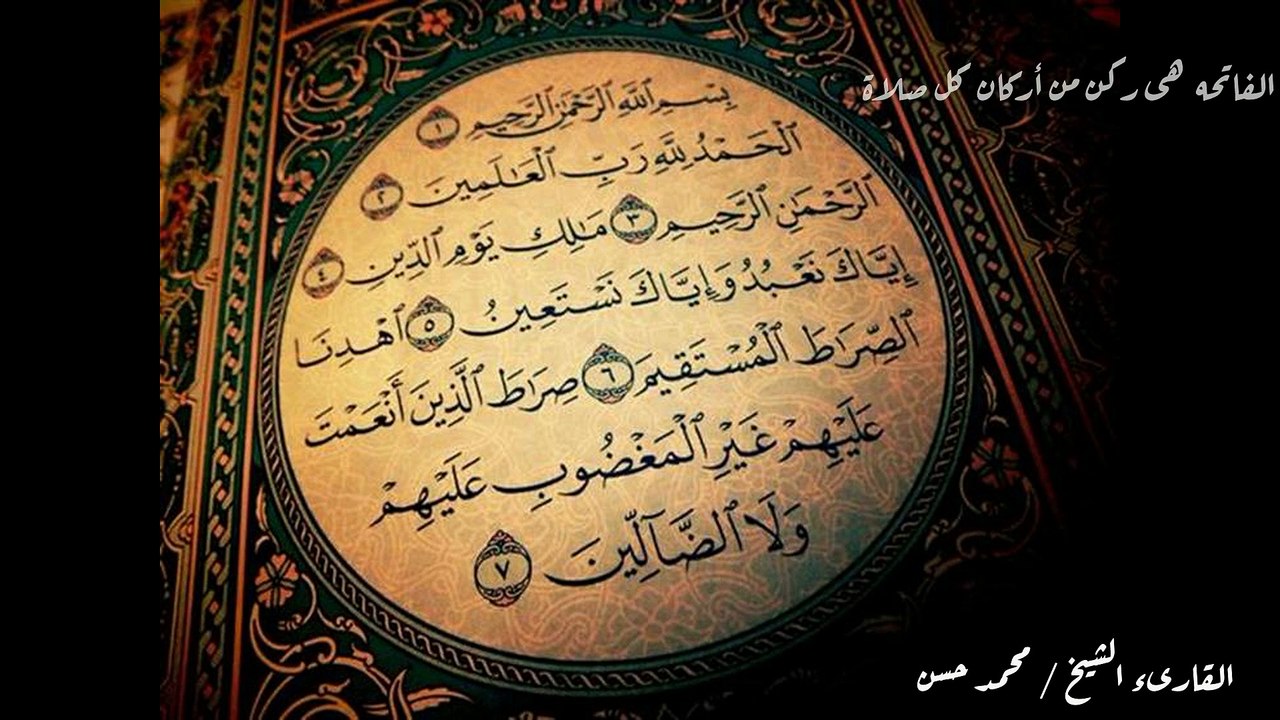 الفاتحه هى ركن من أركان كل صلاة
بِسْمِ ٱللَّهِ ٱلرَّحْمَٰنِ ٱلرَّحِيمِ ١
ٱلْحَمْدُ لِلَّهِ رَبِّ ٱلْعَٰلَمِينَ ٢
ٱلرَّحْمَٰنِ ٱلرَّحِيمِ ٣ مَٰلِكِ يَوْمِ ٱلدِّينِ ٤
إِيَّاكَ نَعْبُدُ وَإِيَّاكَ نَسْتَعِينُ ٥ ٱهْدِنَا
ٱلصِّرَٰطَ ٱلْمُسْتَقِيمَ ٦ صِرَٰطَ ٱلَّذِينَ أَنْعَمْتَ
عَلَيْهِمْ غَيْرِ ٱلْمَغْضُوبِ عَلَيْهِمْ
وَلَا ٱلضَّآلِّينَ ٧
القارىء الشيخ / محمد حسن